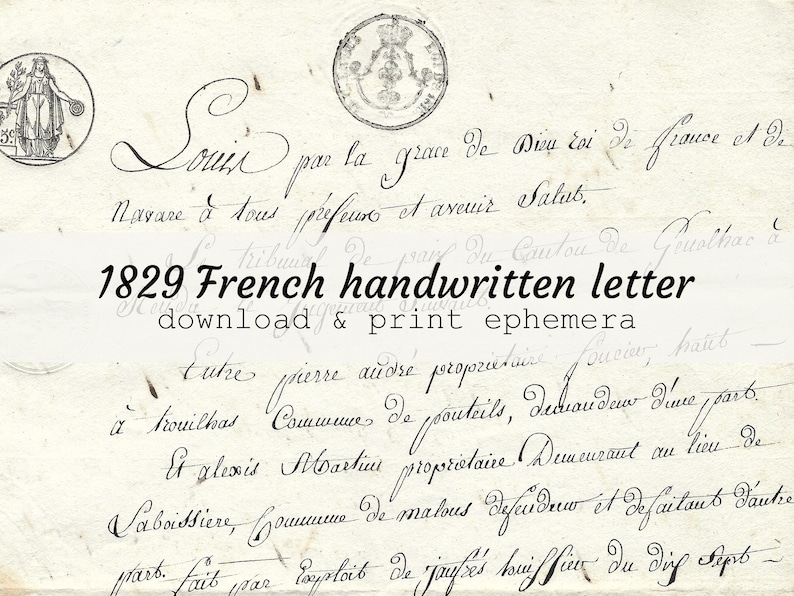 Louis par la grace de Dieu roi de france et de
Navare à tous présens et avenir Salut.
Le tribunal de paix du Canton de Génolhac à
Rendu le Jugement Suivant.
1829 French handwritten letter
download & print ephemera
Entre pierre andré proprietaire foncier, haut —
à trouilhas Commune de ponteils, demandeur d'une part.
Et alexis Martin proprietaire Demeurant au lieu de
Laboissiere, Commune de malons défendeur et défaitant d'autre
part. fait par Exploit de jaufrés huissier du dix Sept —